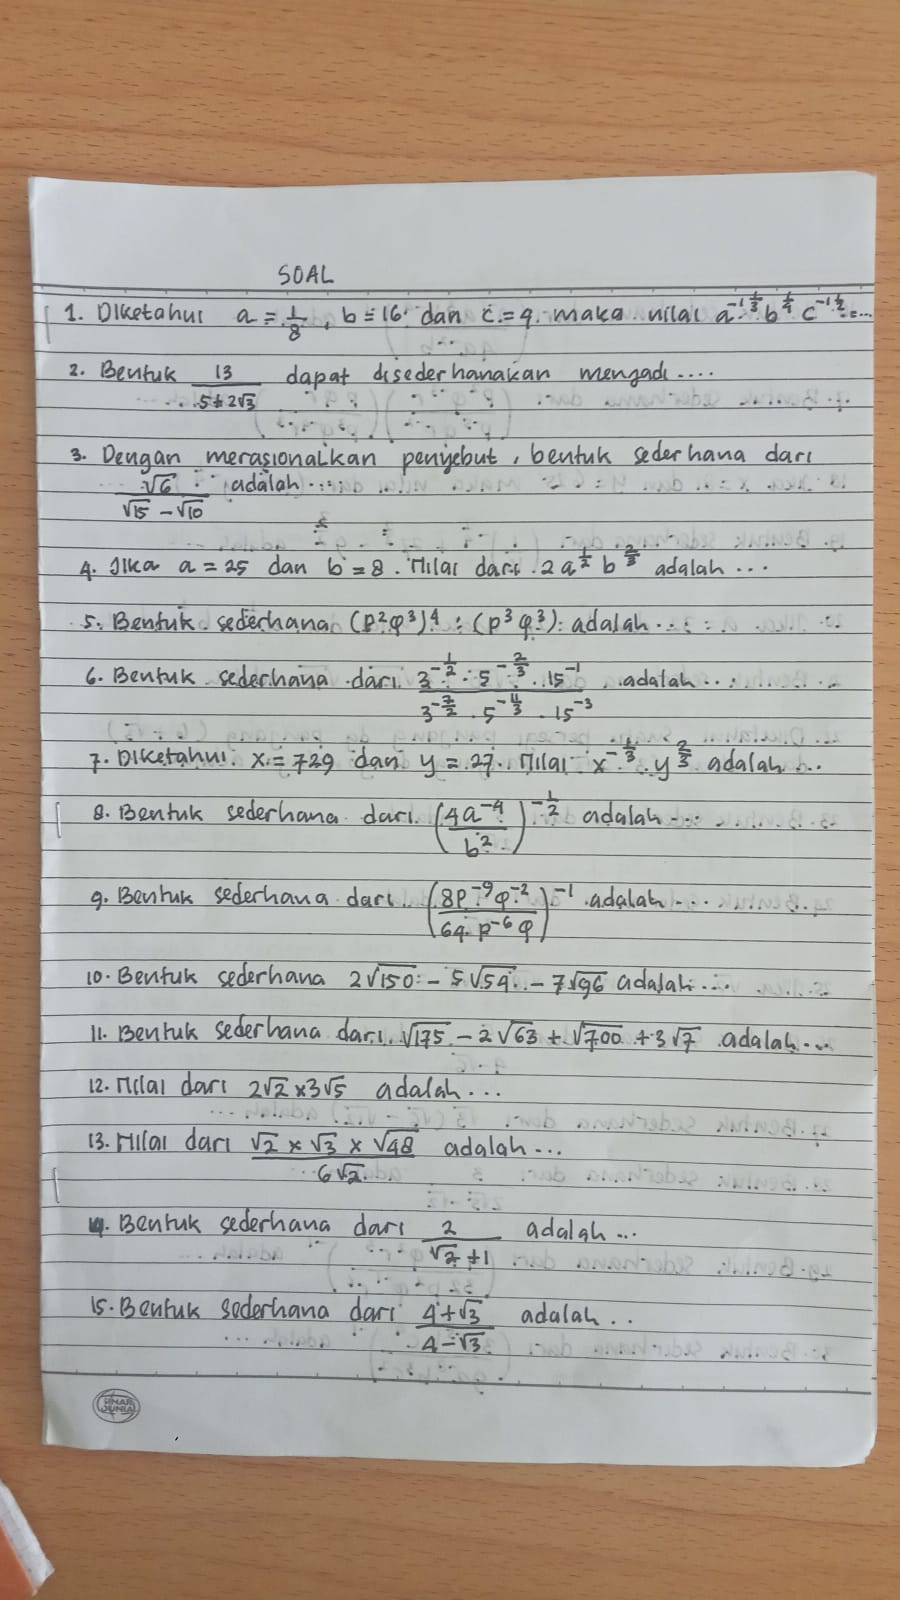 SOAL
1. Diketahui a = 1/8, b = 16 dan c = 4. maka nilai a^-1 1/3 b^1/4 c^-1 1/2 = ...
2. Bentuk 13/(5+2√3) dapat disederhanakan mengadi ....
3. Dengan merasionalkan penyebut, bentuk sederhana dari
√6/(√15 - √10) adalah ....
4. Jika a = 25 dan b = 8. Nilai dari 2a^1/2 b^2/3 adalah ...
5. Bentuk sederhana (p²q³)⁴ : (p³q³) adalah ...
6. Bentuk sederhana dari (3^-1/2 . 5^-2/3 . 15^-1)/(3^-7/2 . 5^-11/3 . 15^-3) adalah ...
7. Diketahui x = 729 dan y = 27. Nilai x^-1/3 . y^2/3 adalah ...
8. Bentuk sederhana dari (4a^-4/b²)^-1/2 adalah ...
9. Bentuk sederhana dari (8p^-9q^-2/64 p^-6 q)^-1 adalah ...
10. Bentuk sederhana 2√150 - 5√54 - 7√96 adalah ...
11. Bentuk sederhana dari √175 - 2√63 + √700 + 3√7 adalah ...
12. Nilai dari 2√2 x 3√5 adalah ...
13. Nilai dari (√2 x √3 x √48)/(6√2) adalah ...
14. Bentuk sederhana dari 2/(√2 + 1) adalah ...
15. Bentuk sederhana dari (4+√3)/(4-√3) adalah ..
SINAR
DUNIA